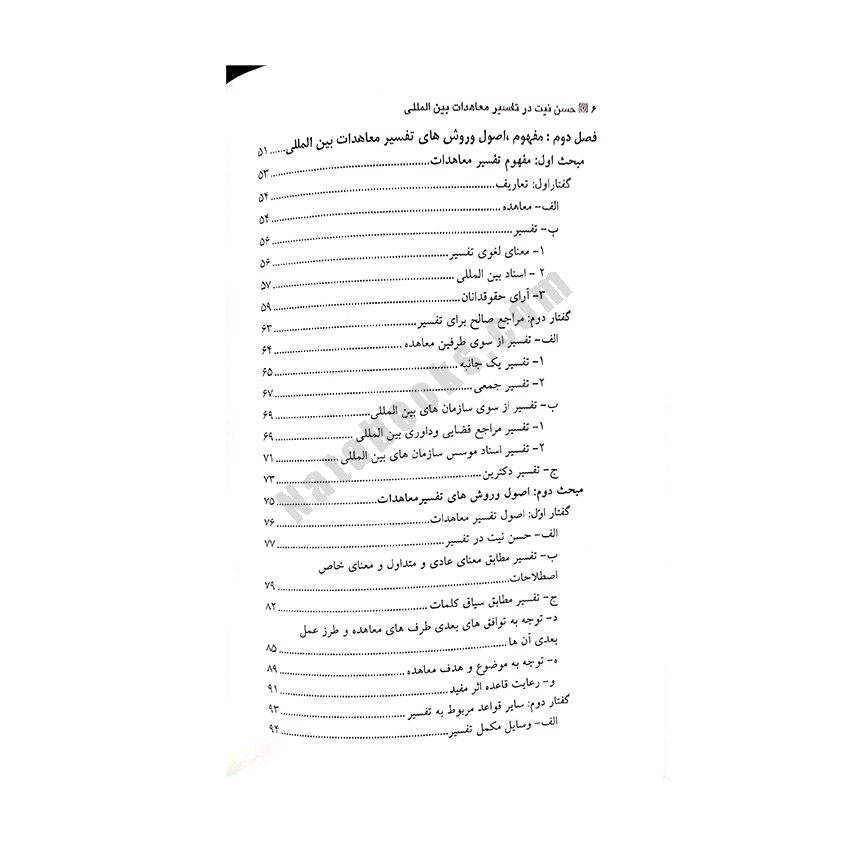 ۶ حسن نیت در تفسیر معاهدات بین المللی
فصل دوم : مفهوم ،اصول وروش های تفسیر معاهدات بین المللی.....۵۱
مبحث اول: مفهوم تفسیر معاهدات.....۵۳
گفتاراول: تعاریف.....۵۴
الف- معاهده.....۵۴
ب- تفسیر.....۵۶
۱- معنای لغوی تفسیر.....۵۶
۲ - اسناد بین المللی.....۵۷
۳- آرای حقوقدانان.....۵۹
گفتار دوم: مراجع صالح برای تفسیر.....۶۳
الف- تفسیر از سوی طرفین معاهده.....۶۴
۱- تفسیر یک جانبه.....۶۵
۲- تفسیر جمعی.....۶۷
ب- تفسیر از سوی سازمان های بین المللی.....۶۹
۱- تفسیر مراجع قضایی وداوری بین المللی.....۶۹
۲- تفسیر اسناد موسس سازمان های بین المللی.....۷۱
ج- تفسیر دکترین.....۷۳
مبحث دوم: اصول وروش های تفسیرمعاهدات.....۷۵
گفتار اوّل: اصول تفسیر معاهدات.....۷۶
الف- حسن نیت در تفسیر.....۷۷
ب- تفسیر مطابق معنای عادی و متداول و معنای خاص
اصطلاحات.....۷۹
ج- تفسیر مطابق سیاق کلمات.....۸۲
د- توجه به توافق های بعدی طرف های معاهده و طرز عمل
بعدی آن ها.....۸۵
ه- توجه به موضوع و هدف معاهده.....۸۹
و- رعایت قاعده اثر مفید.....۹۱
گفتار دوم: سایر قواعد مربوط به تفسیر.....۹۳
الف- وسایل مکمل تفسیر.....۹۴
Natabooks.com